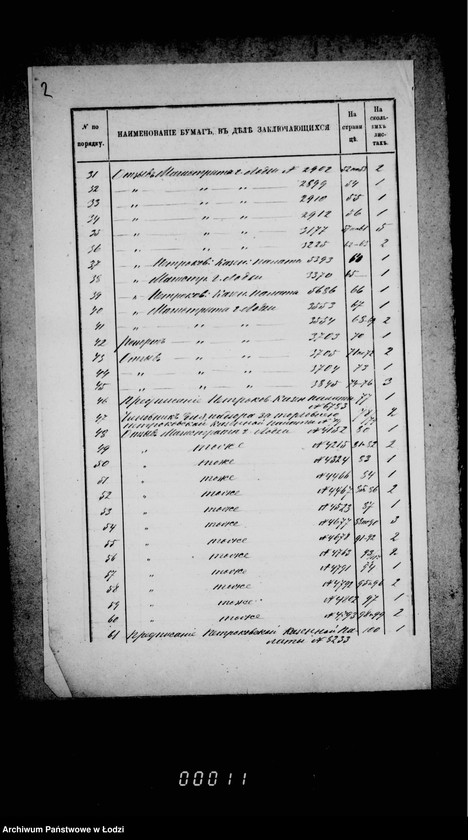 2
№ по порядку.
НАИМЕНОВАНІЕ БУМАГ, ВЪ ДѢЛѢ ЗАКЛЮЧАЮЩИХСЯ
На страни цѣ.
На сколь- кихъ лис- тахъ.
31 Магистрата г. Лодзи № 2902 2
32 — „ „ „ 2899 54 1
33 — „ „ „ 2910 55 1
34 — „ „ „ 2912 56 1
35 — „ „ „ 3177 5
36 — „ „ „ 3225 62-63 2
37 — „ Петроков. Казен. Палата 5393 64 1
38 — „ Магистр. г. Лодзи 3370 65 1
39 — „ Петроков. Казен. Палата 5686 66 1
40 — „ Магистрата г. Лодзи 3553 67 1
41 — „ „ „ 3554 68-69 2
42 Рапортъ „ „ 3703 70 1
43 „ „ 3705 71-72 2
44 — „ „ 3704 73 1
45 — „ „ 3845 74-76 3
46 Предписаніе Петроков Казен Палаты № 6753 77 1
47 за торговлею Петроковской Казенной Палаты 2
48 Магистрата г. Лодзи № 4152 80 1
49 „ тоже № 4215 81-82 2
50 „ тоже № 4324 83 1
51 „ тоже № 4466 84 1
52 „ тоже № 4467 85-86 2
53 „ тоже № 4523 87 1
54 „ тоже № 4677 88-90 3
55 „ тоже № 4678 91-92 2
56 „ тоже № 4762 2
57 „ тоже № 4791 94 1
58 „ тоже № 4792 95-96 2
59 „ тоже № 4802 97 1
60 „ тоже № 4793 98-99 2
61 Предписаніе Петроковской Казенной Па 100 1
латы № 8233
00011
Archiwum Państwowe w Łodzi